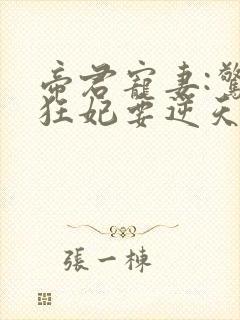 帝君寵妻:驚
狂妃要逆天
張一棟